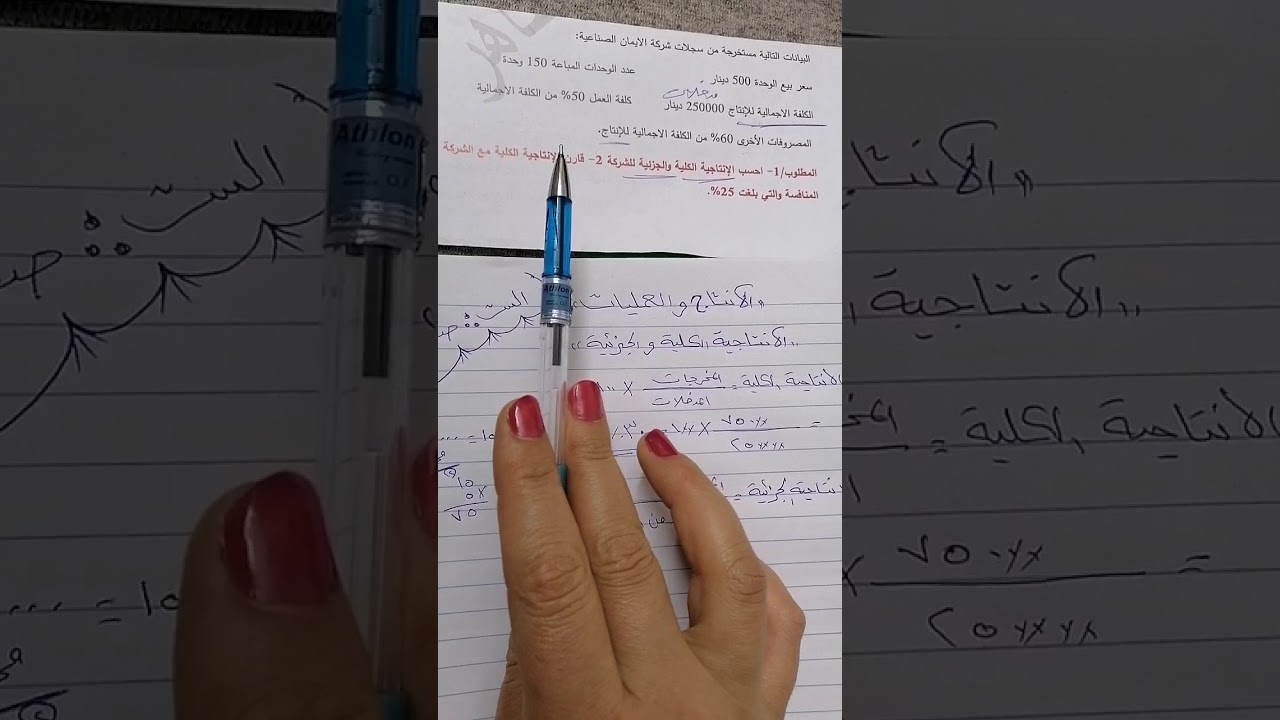 البيانات التالية مستخرجة من سجلات شركة الايمان الصناعية:
سعر بيع الوحدة 500 دينار عدد الوحدات المباعة 150 وحدة
مدخلات
الكلفة الاجمالية للإنتاج 250000 دينار كلفة العمل 50% من الكلفة الاجمالية
المصروفات الأخرى 60% من الكلفة الاجمالية للإنتاج.
المطلوب/1- احسب الإنتاجية الكلية والجزئية للشركة 2- قارن الإنتاجية الكلية مع الشركة
المنافسة والتي بلغت 25%.
الأنتاج والعمليات الست
"الأنتاجية الكلية والجزئية"
الأنتاجية الكلية = المخرجات / المدخلات × ١٠٠
= ٧٥٠٠٠ / ٢٥٠٠٠٠ ×
الجزئية =
١٥
٥ ×
٧٥
Athlon